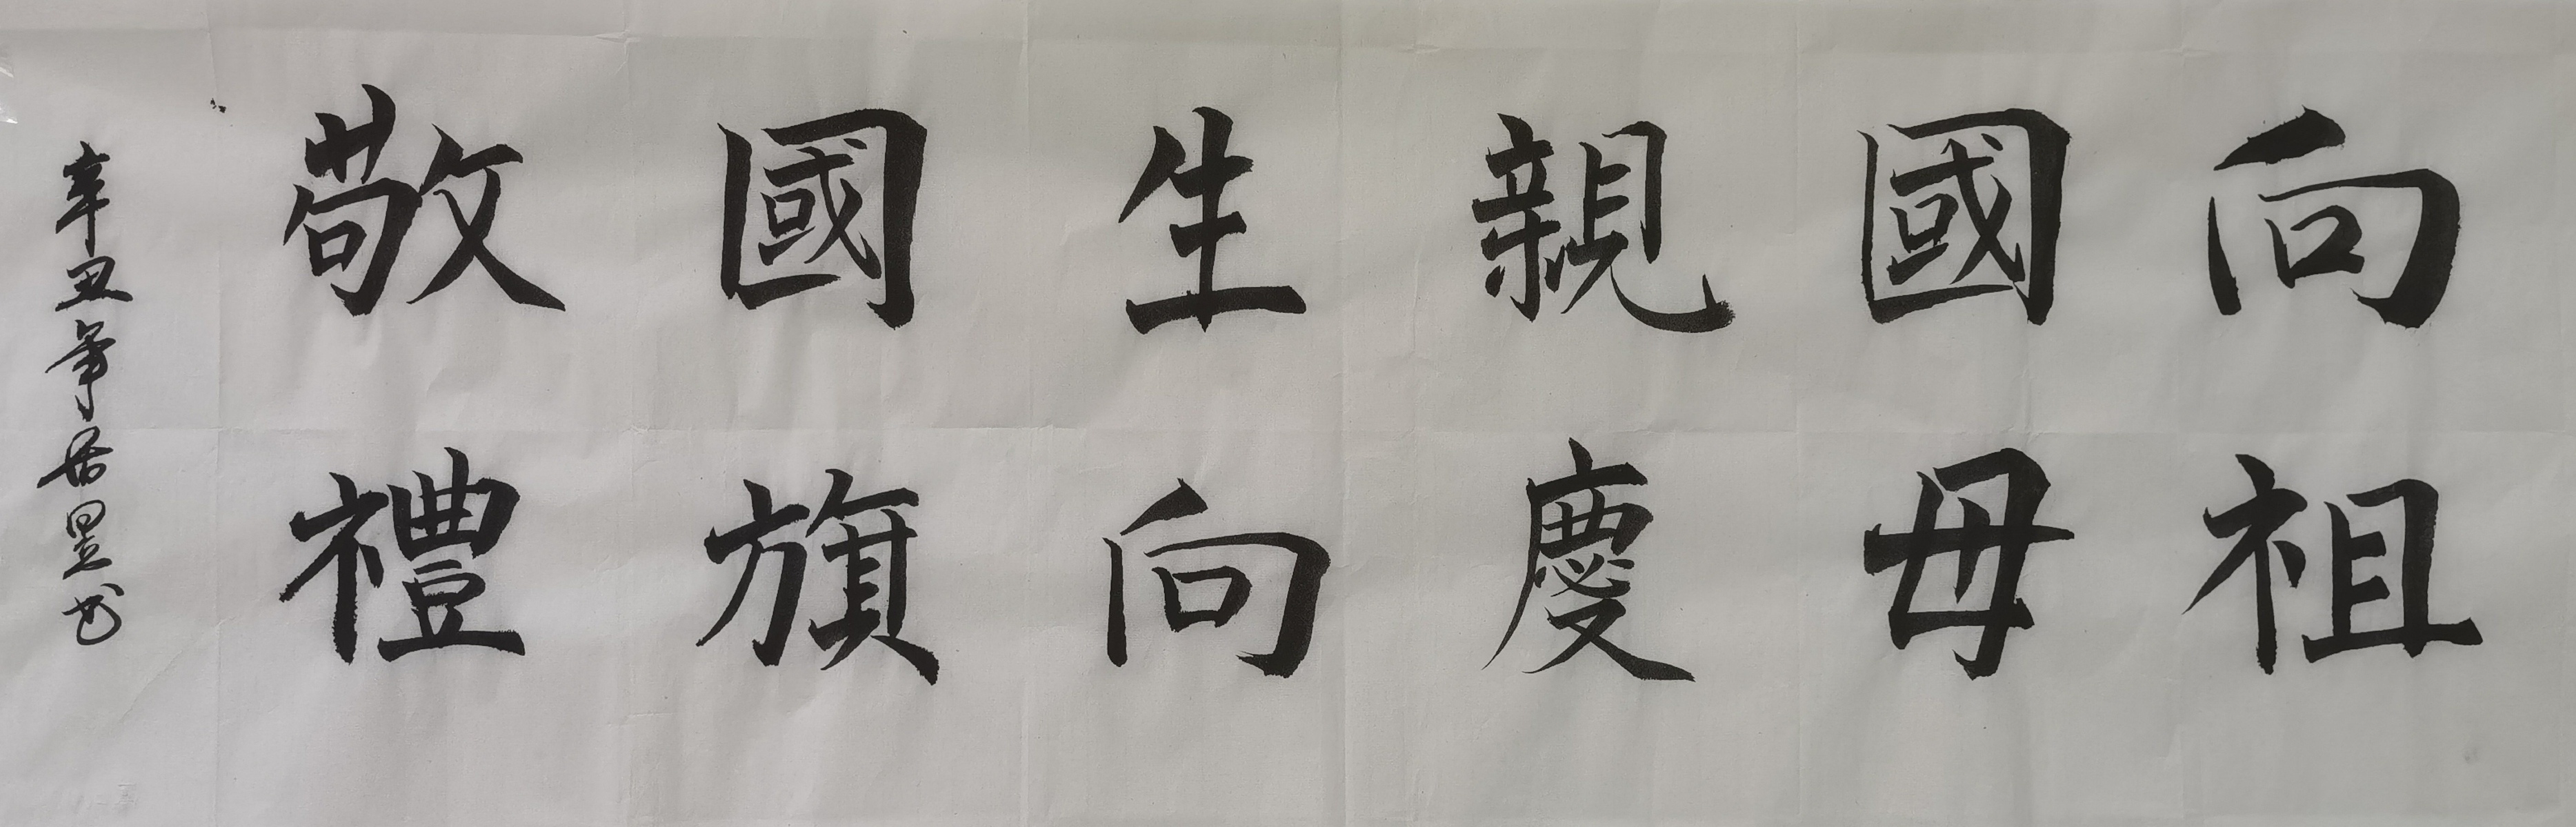 向祖
國母
親慶
生向
國旗
敬禮
辛丑年岳昱书